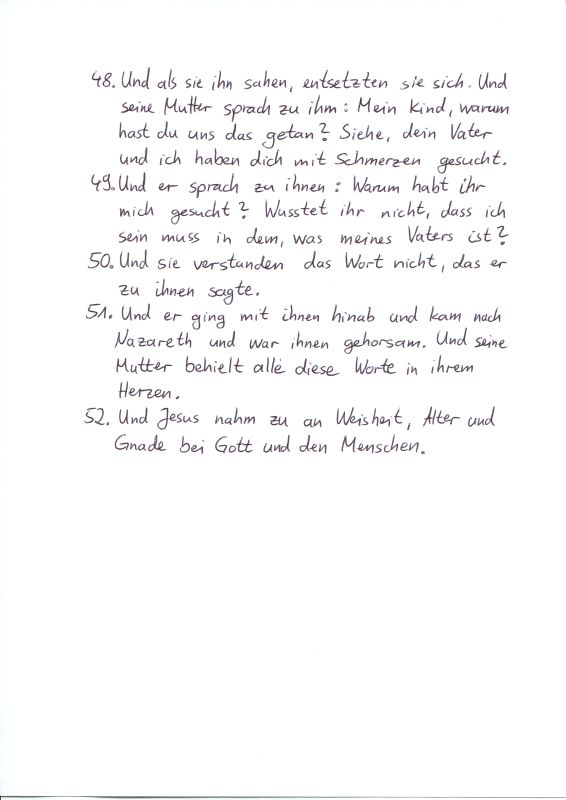 48. Und als sie ihn sahen, entsetzten sie sich. Und
seine Mutter sprach zu ihm: Mein Kind, warum
hast du uns das getan? Siehe, dein Vater
und ich haben dich mit Schmerzen gesucht.
49. Und er sprach zu ihnen: Warum habt ihr
mich gesucht? Wusstet ihr nicht, dass ich
sein muss in dem, was meines Vaters ist?
50. Und sie verstanden das Wort nicht, das er
zu ihnen sagte.
51. Und er ging mit ihnen hinab und kam nach
Nazareth und war ihnen gehorsam. Und seine
Mutter behielt alle diese Worte in ihrem
Herzen.
52. Und Jesus nahm zu an Weisheit, Alter und
Gnade bei Gott und den Menschen.